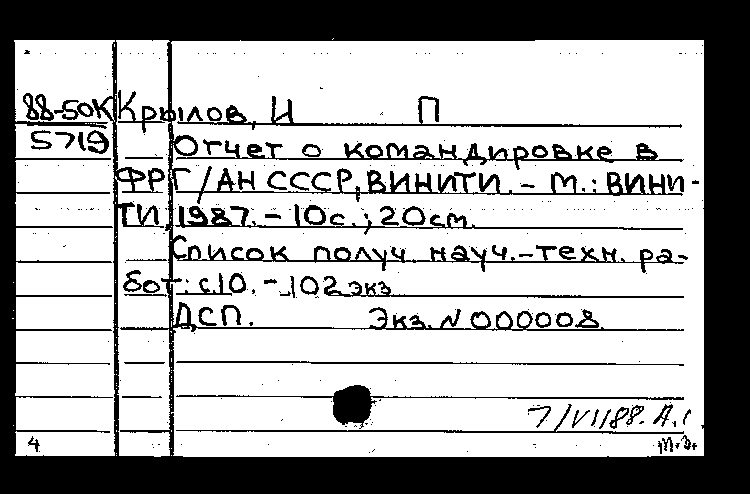 88-50К Крылов, И П
5719 Отчет о командировке в
ФРГ/АН СССР, ВИНИТИ. - М.: ВИНИ-
ТИ, 1987. - 10с.; 20см.
Список получ. науч.-техн. ра-
бот: с.10. - 102 экз
ДСП. Экз. N 000008
7/VI 88. А.
4